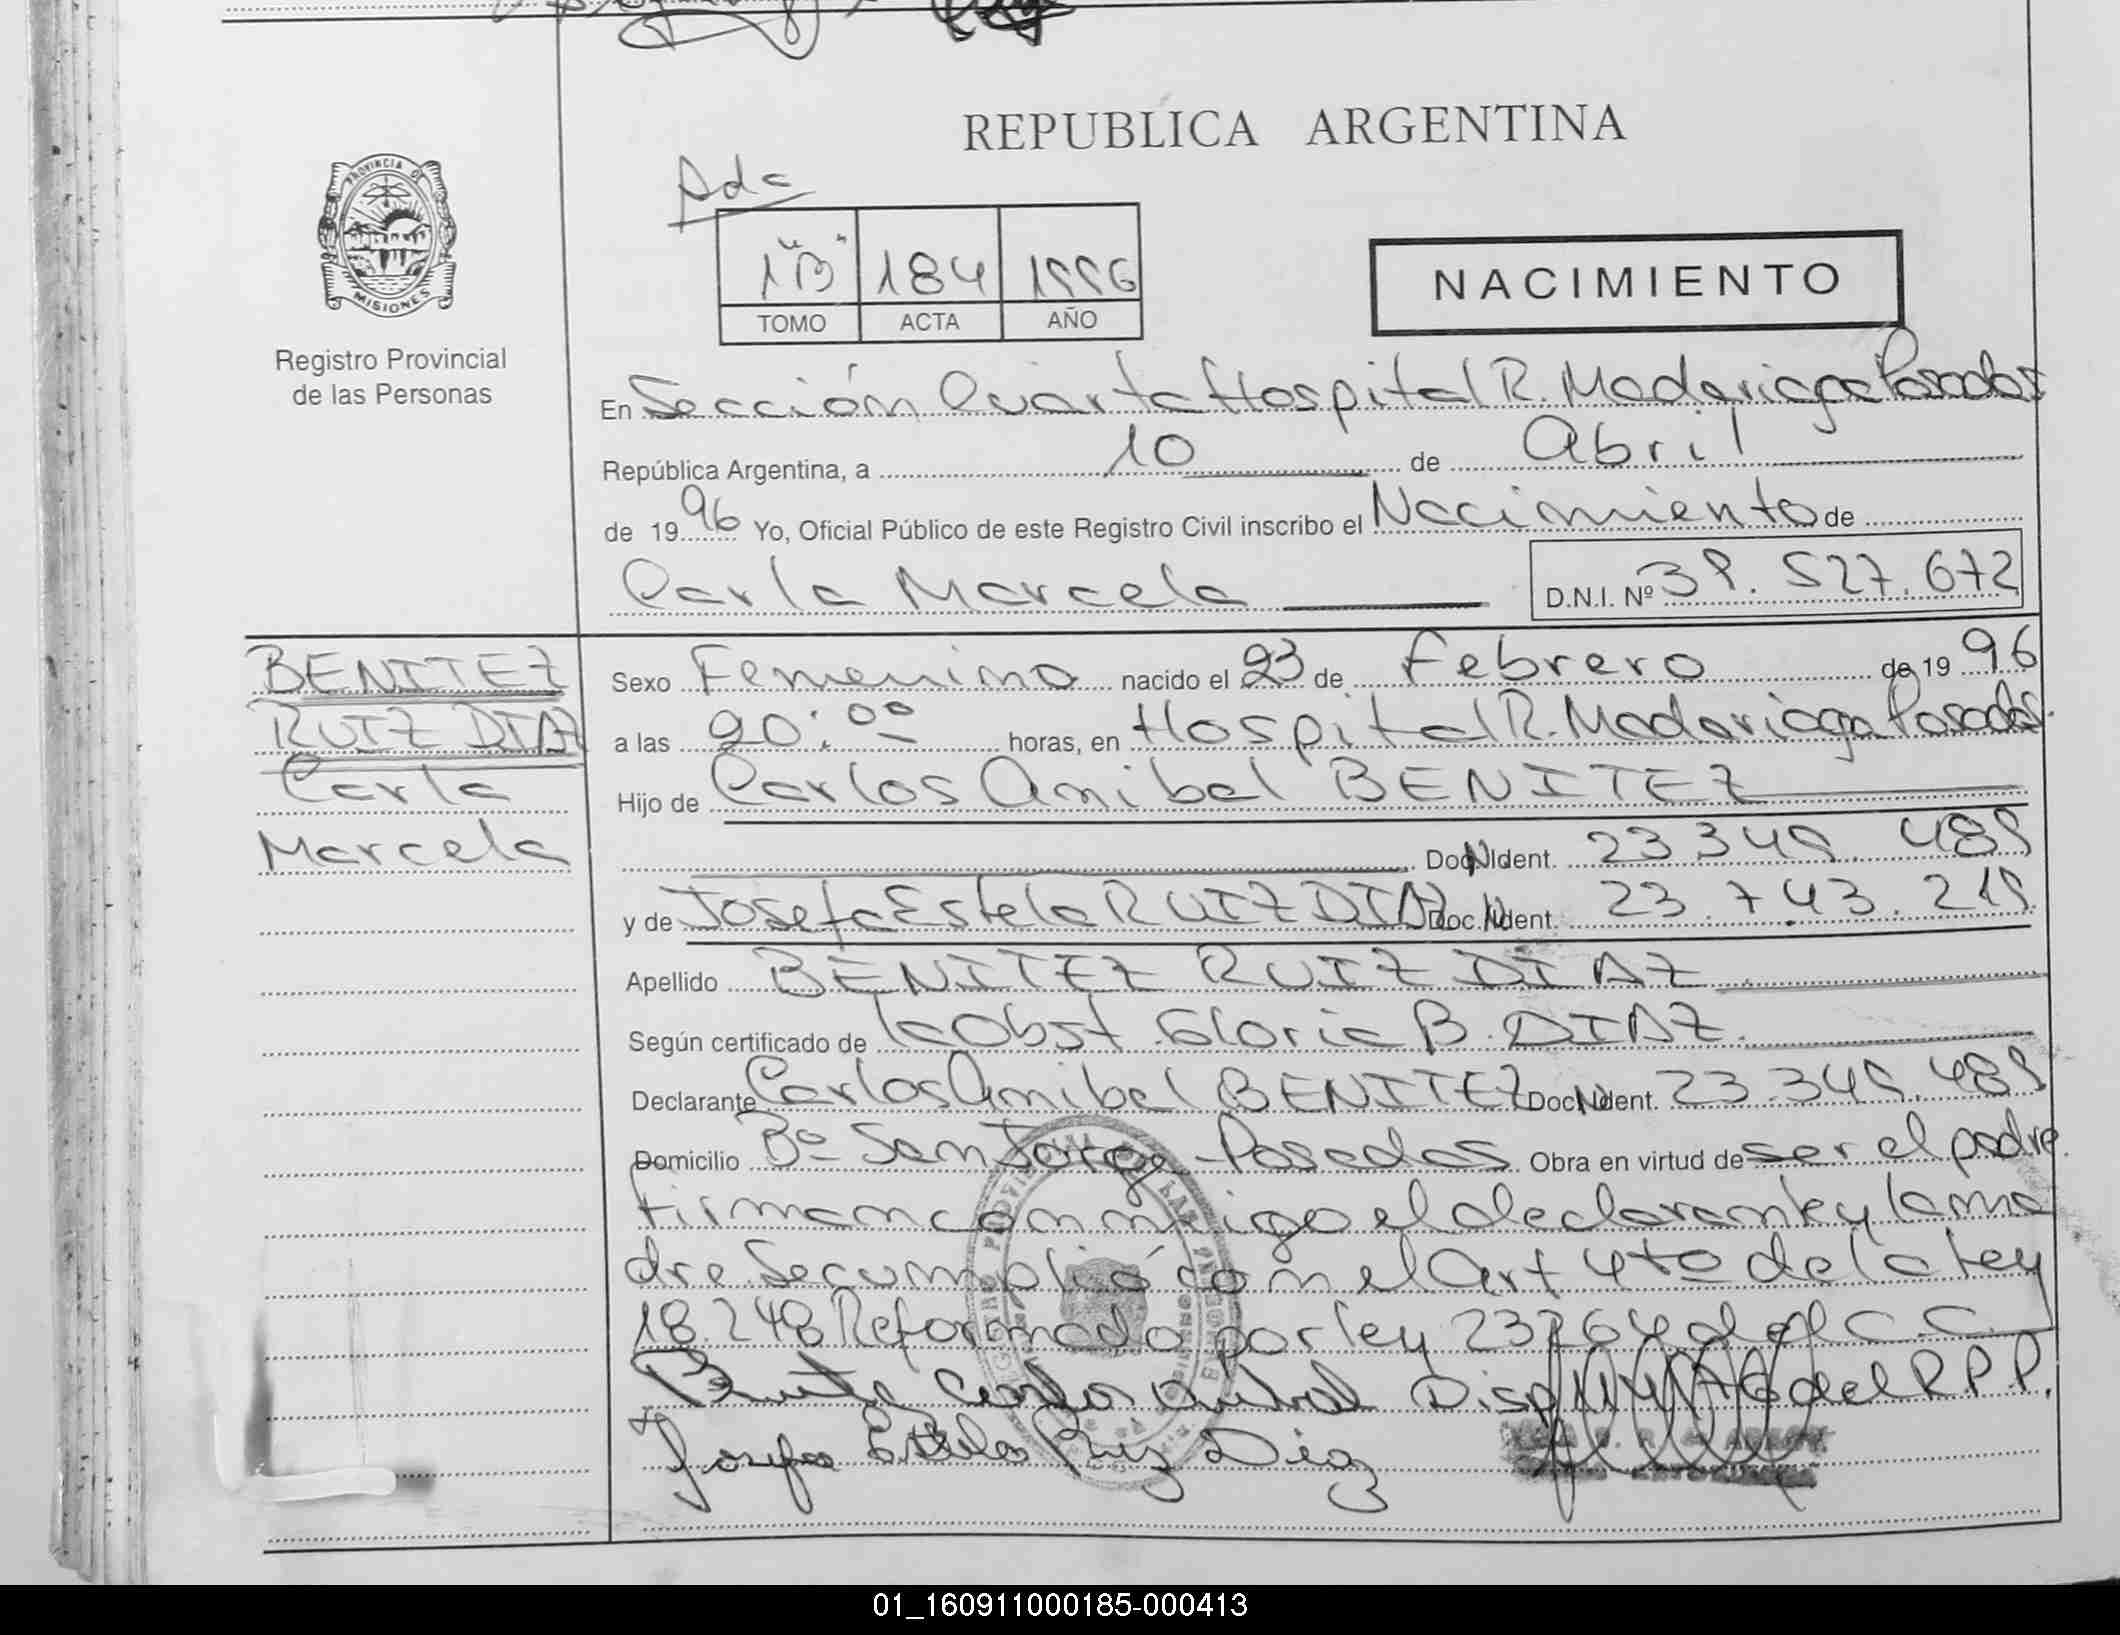 REPUBLICA ARGENTINA
PROVINCIA DE
MISIONES
Registro Provincial
de las Personas
Ada
1 "B" 184 1996
TOMO ACTA AÑO
NACIMIENTO
En Sección Cuarta Hospital R. Madariaga Posadas
República Argentina, a 10 de Abril
de 1996 Yo, Oficial Público de este Registro Civil inscribo el Nacimiento de
Carla Marcela D.N.I. Nº 39.527.672
BENITEZ
RUIZ DIAZ
Carla
Marcela
Sexo Femenino nacido el 23 de Febrero de 1996
a las 20:00 horas, en Hospital R. Madariaga Posadas.
Hijo de Carlos Anibal BENITEZ
Doc. N. Ident. 23.349.489
y de Josefa Estela RUIZ DIAZ Doc. N. Ident. 23.743.219
Apellido BENITEZ RUIZ DIAZ
Según certificado de la Obst. Gloria B. DIAZ.
Declarante Carlos Anibal BENITEZ Doc. N. Ident. 23.349.489
Domicilio Bº San Jorge - Posadas Obra en virtud de ser el padre.
firman conmigo el declarante y la ma
dre. Se cumplió con el Art 4to de la ley
18.248 Reformado por ley 23264 del C.C.
Benitez Carlos Anibal Disp 114/76 del R.P.P.
Josefa Estela Ruiz Diaz
01_160911000185-000413